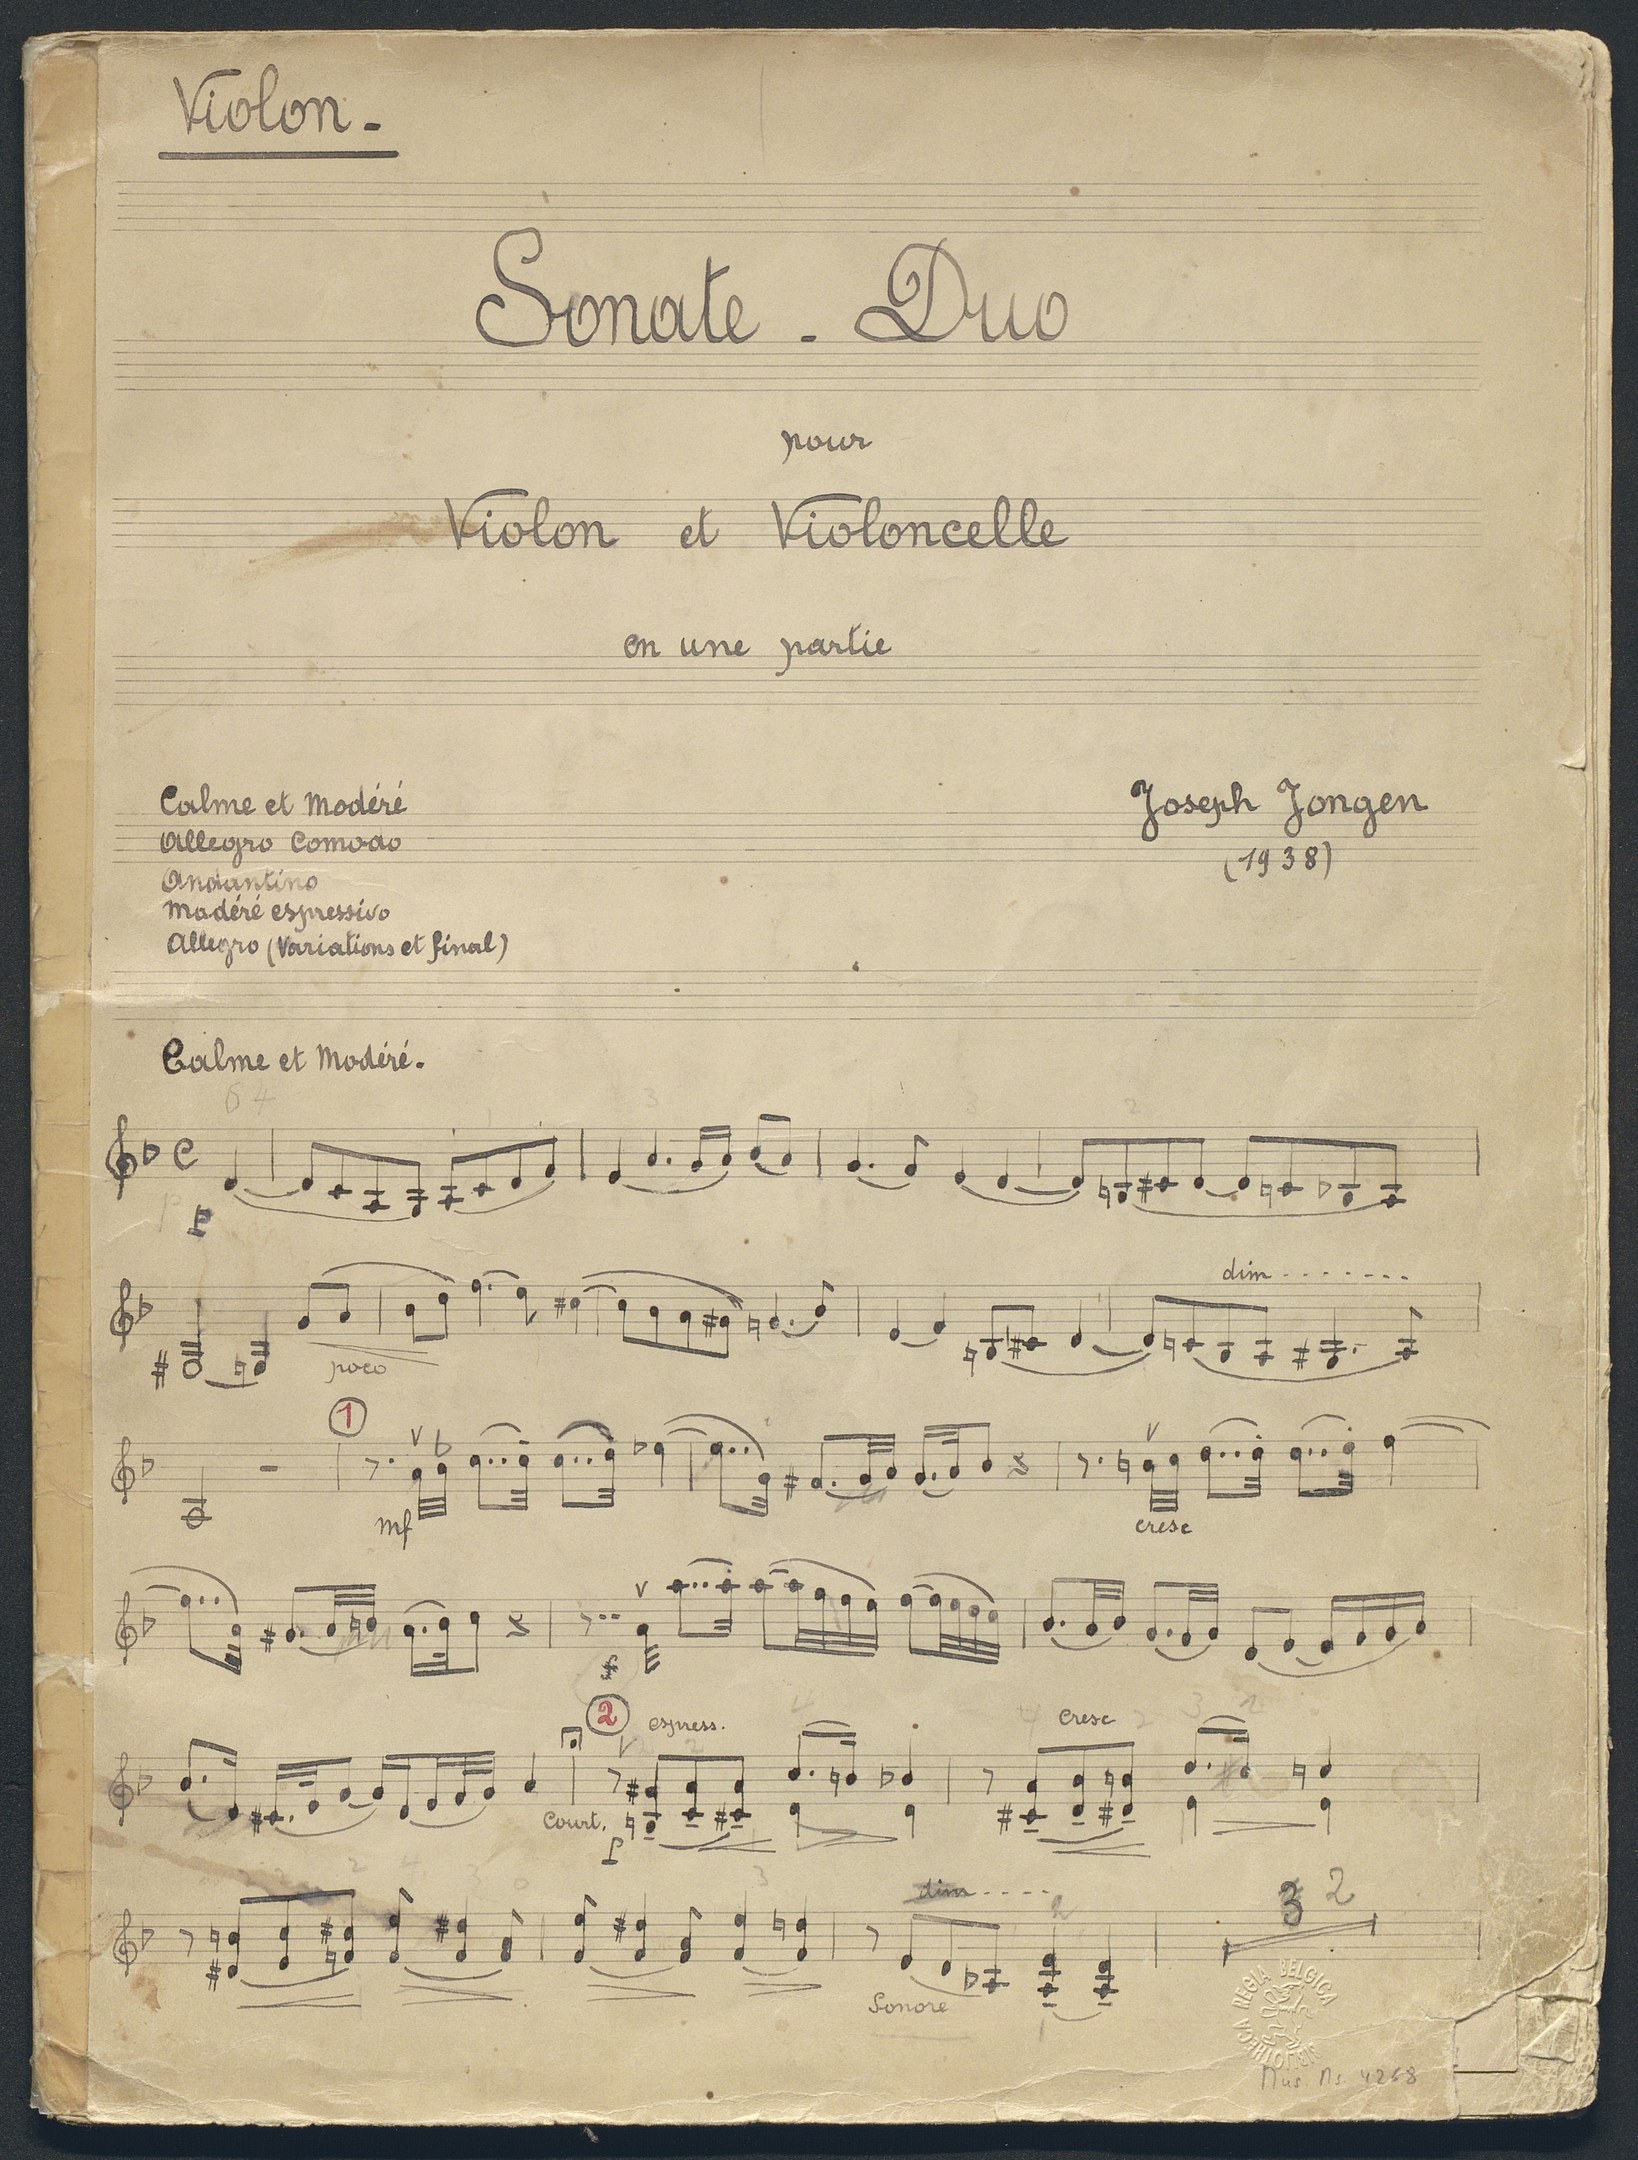 Violon.
Sonate - Duo
pour
Violon et Violoncelle
en une partie
Calme et Modéré
Allegro Comodo
Andantino
Modéré espressivo
Allegro (Variations et final)
Joseph Jongen
(1938)
Calme et Modéré.
p
dim.......
poco
1
mf
cresc
f
2
espress.
cresc
Court.
p
dim....
3 2
Sonore
BIBLIOTHECA REGIA BELGICA
Mus. Ms. 4268